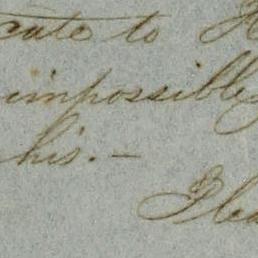 cate to H
impossible
his. –
Plea